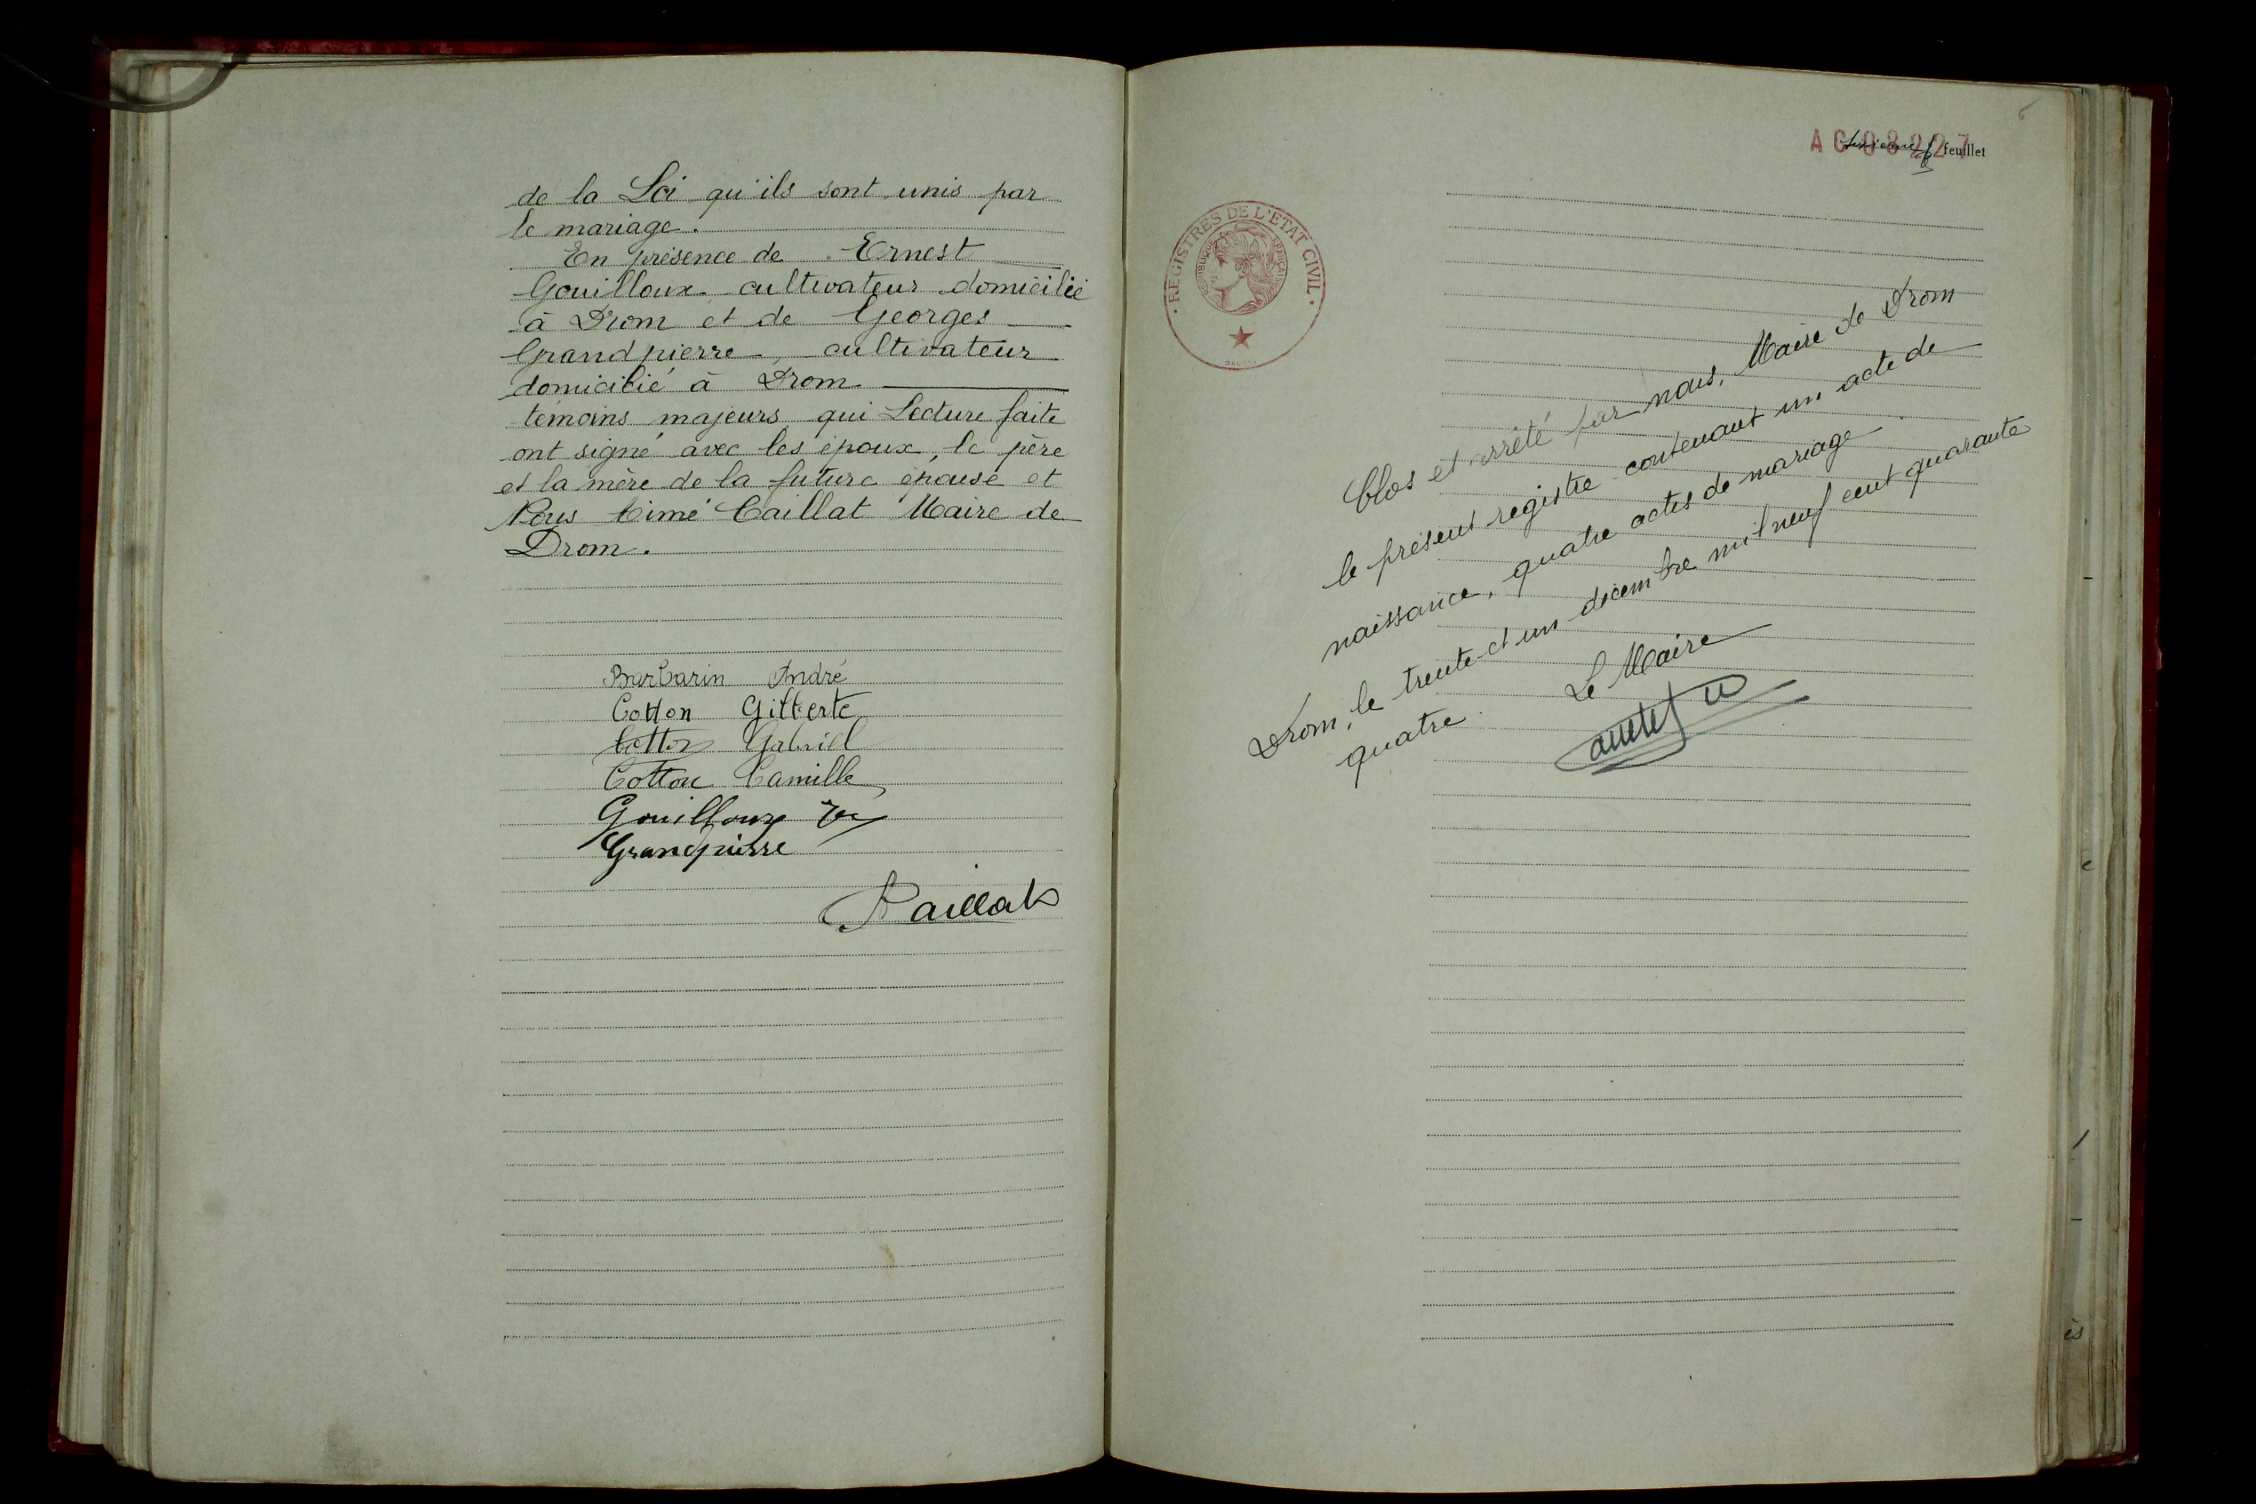 de la Loi qu'ils sont unis par
le mariage.
En présence de Ernest
Gouilloux cultivateur domicilié
à Drom et de Georges
Grandpierre, cultivateur
domicilié à Drom
témoins majeurs qui Lecture faite
ont signé avec les époux, le père
et la mère de la future épouse et
Nous Aimé Caillat Maire de
Drom.
Burbarin André
Cotton Gilberte
Cotton Gabriel
Cotton Camille
Gouilloux
Grandpierre
Caillat
6
AC 08227
feuillet
REGISTRES DE L'ETAT CIVIL
Clos et arrêté par nous, Maire de Drom
le présent registre contenant un acte de
naissance, quatre actes de mariage
Drom, le trente et un décembre mil neuf cent quarante
quatre
Le Maire